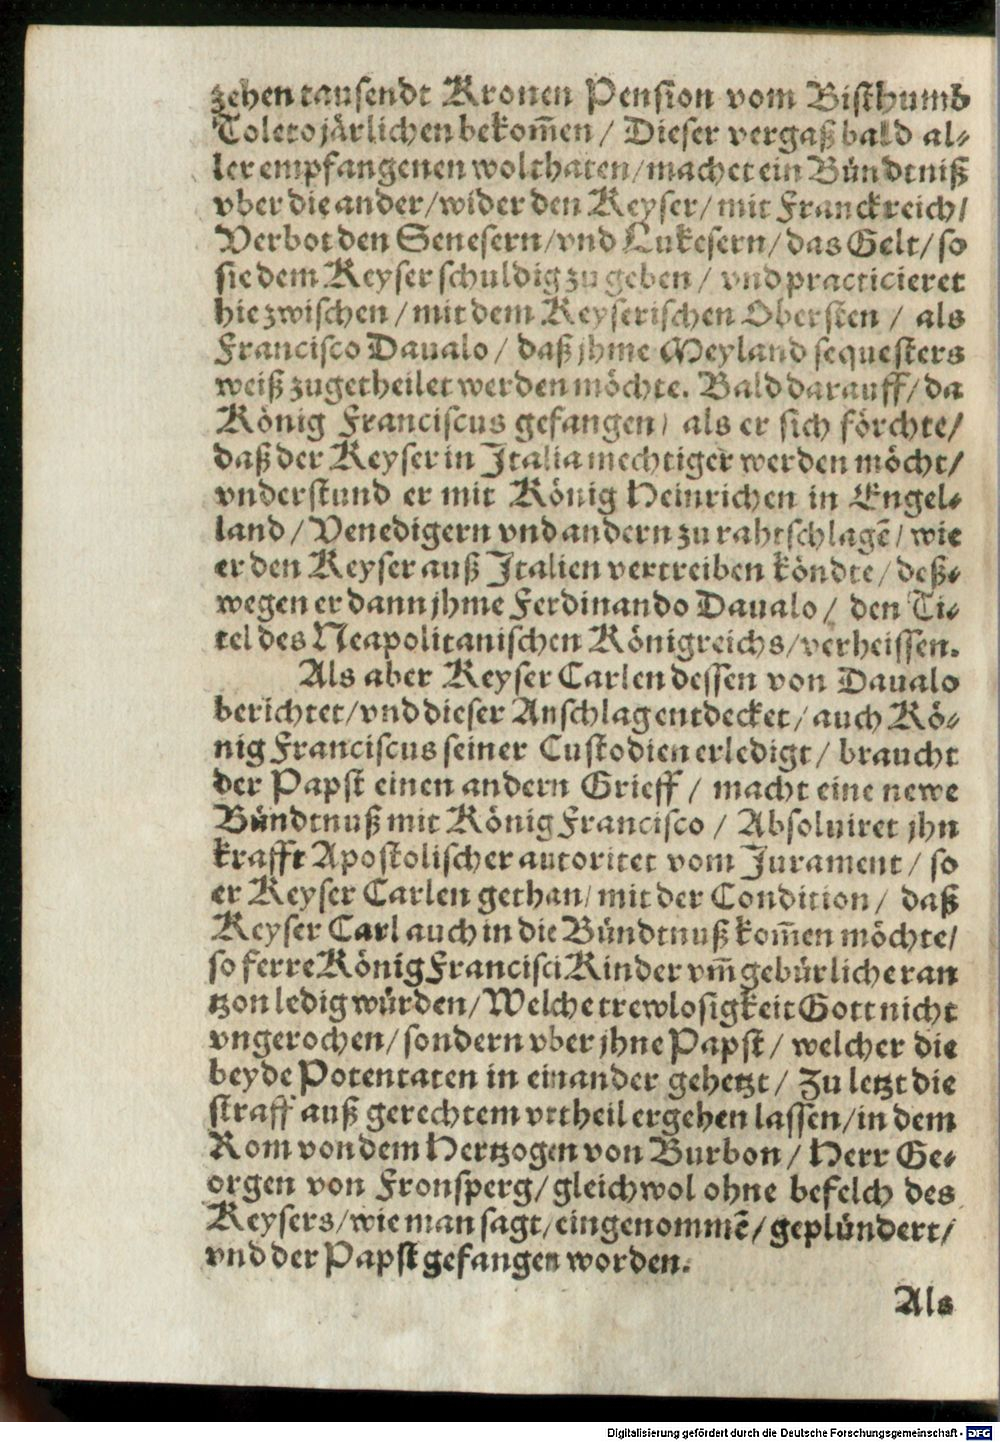 zehen tausendt Kronen Pension vom Bisthumb
Toleto järlichen bekom̃en / Dieser vergaß bald al⸗
ler empfangenen wolthaten / machet ein Bündtniß
vber die ander / wider den Keyser / mit Franckreich /
Verbot den Senesern / vnd Lukesern / das Gelt / so
sie dem Keyser schuldig zu geben / vnd practicieret
hiezwischen / mit dem Keyserischen Obersten / als
Francisco Daualo / daß jhme Meyland sequesters
weiß zugetheilet werden möchte. Bald darauff / da
König Franciscus gefangen / als er sich förchte /
daß der Keyser in Italia mechtiger werden möcht /
vnderstund er mit König Heinrichen in Engel⸗
land / Venedigern vnd andern zu rahtschlagẽ / wie
er den Keyser auß Italien vertreiben köndte / deß⸗
wegen er dann jhme Ferdinando Daualo / den Ti⸗
tel des Neapolitanischen Königreichs / verheissen.
Als aber Keyser Carlen dessen von Daualo
berichtet / vnd dieser Anschlag entdecket / auch Kö⸗
nig Franciscus seiner Custodien erledigt / braucht
der Papst einen andern Grieff / macht eine newe
Bündtnuß mit König Francisco / Absoluiret jhn
krafft Apostolischer autoritet vom Jurament / so
er Keyser Carlen gethan / mit der Condition / daß
Keyser Carl auch in die Bündtnuß kom̃en möchte /
so ferre König Francisci Kinder vm̃ gebürliche ran
tzon ledig würden / Welche trewlosigkeit Gott nicht
vngerochen / sondern vber jhne Papst / welcher die
beyde Potentaten in einander gehetzt / Zu letzt die
straff auß gerechtem vrtheil ergehen lassen / in dem
Rom von dem Hertzogen von Burbon / Herr Ge⸗
orgen von Fronsperg / gleichwol ohne befelch des
Keysers / wie man sagt / eingenommẽ / geplündert /
vnd der Papst gefangen worden.
Als
Digitalisierung gefördert durch die Deutsche Forschungsgemeinschaft - DFG